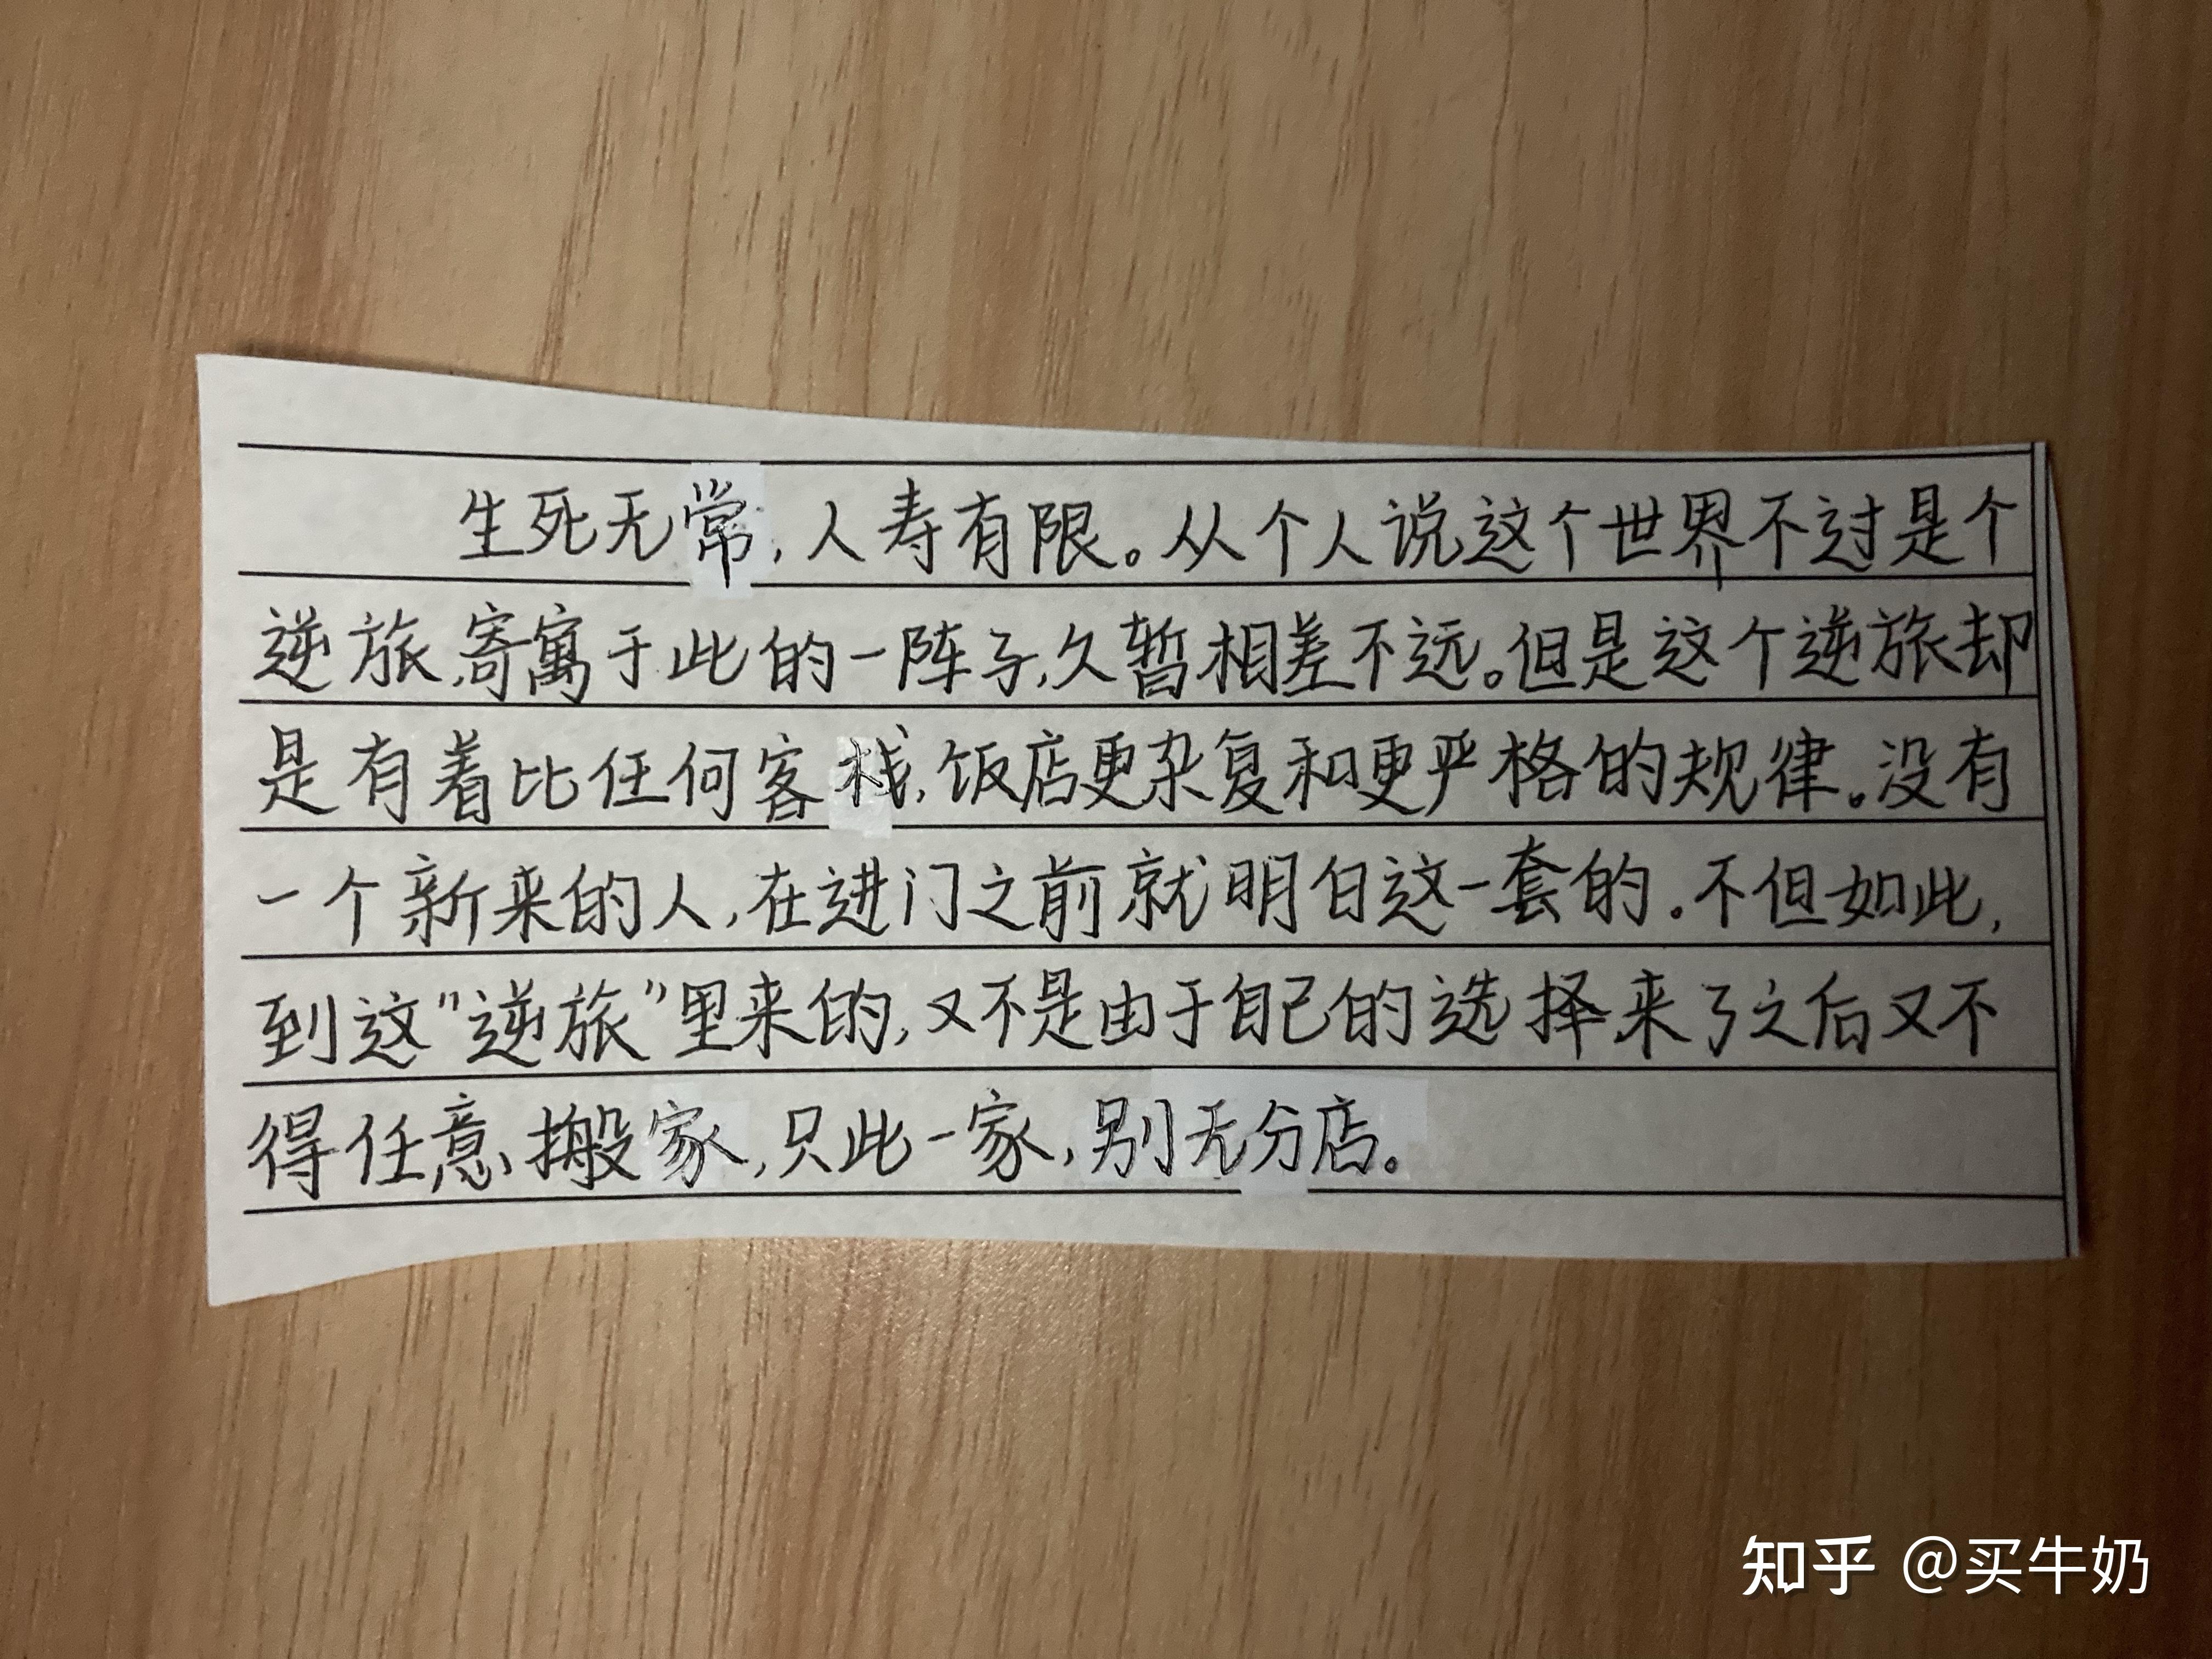 生死无常,人寿有限。从个人说这个世界不过是个
逆旅,寄寓于此的一阵子,久暂相差不远。但是这个逆旅却
是有着比任何客栈,饭店更杂复和更严格的规律。没有
一个新来的人,在进门之前就明白这一套的。不但如此,
到这"逆旅"里来的,又不是由于自己的选择,来了之后又不
得任意搬家,只此一家,别无分店。
知乎 @买牛奶